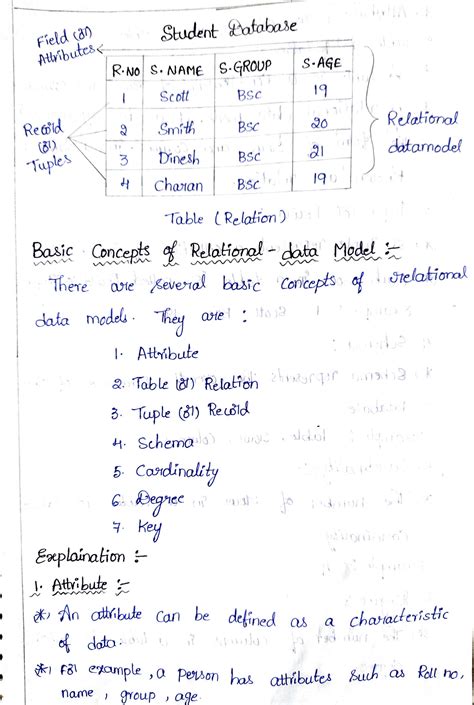 Student Database
Field (or)
Attributes
R.NO S.NAME S.GROUP S.AGE
1 Scott BSC 19
2 Smith BSC 20
3 Dinesh BSC 21
4 Charan BSC 19
Record
(or)
Tuples
Relational
datamodel
Table (Relation)
Basic Concepts of Relational-data Model :-
There are several basic concepts of relational
data models. They are :
1. Attribute
2. Table (or) Relation
3. Tuple (or) Record
4. Schema
5. Cardinality
6. Degree
7. Key
Explaination :-
1. Attribute :-
*) An attribute can be defined as a characteristic
of data.
*) For example, a person has attributes such as Roll no,
name, group, age.